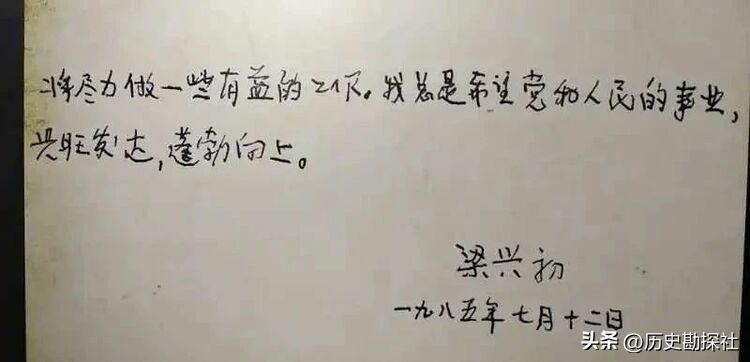 将尽力做一些有益的工作。我总是希望党和人民的事业，
兴旺发达，蓬勃向上。
梁兴初
一九八五年七月十二日
头条 @历史勘探社